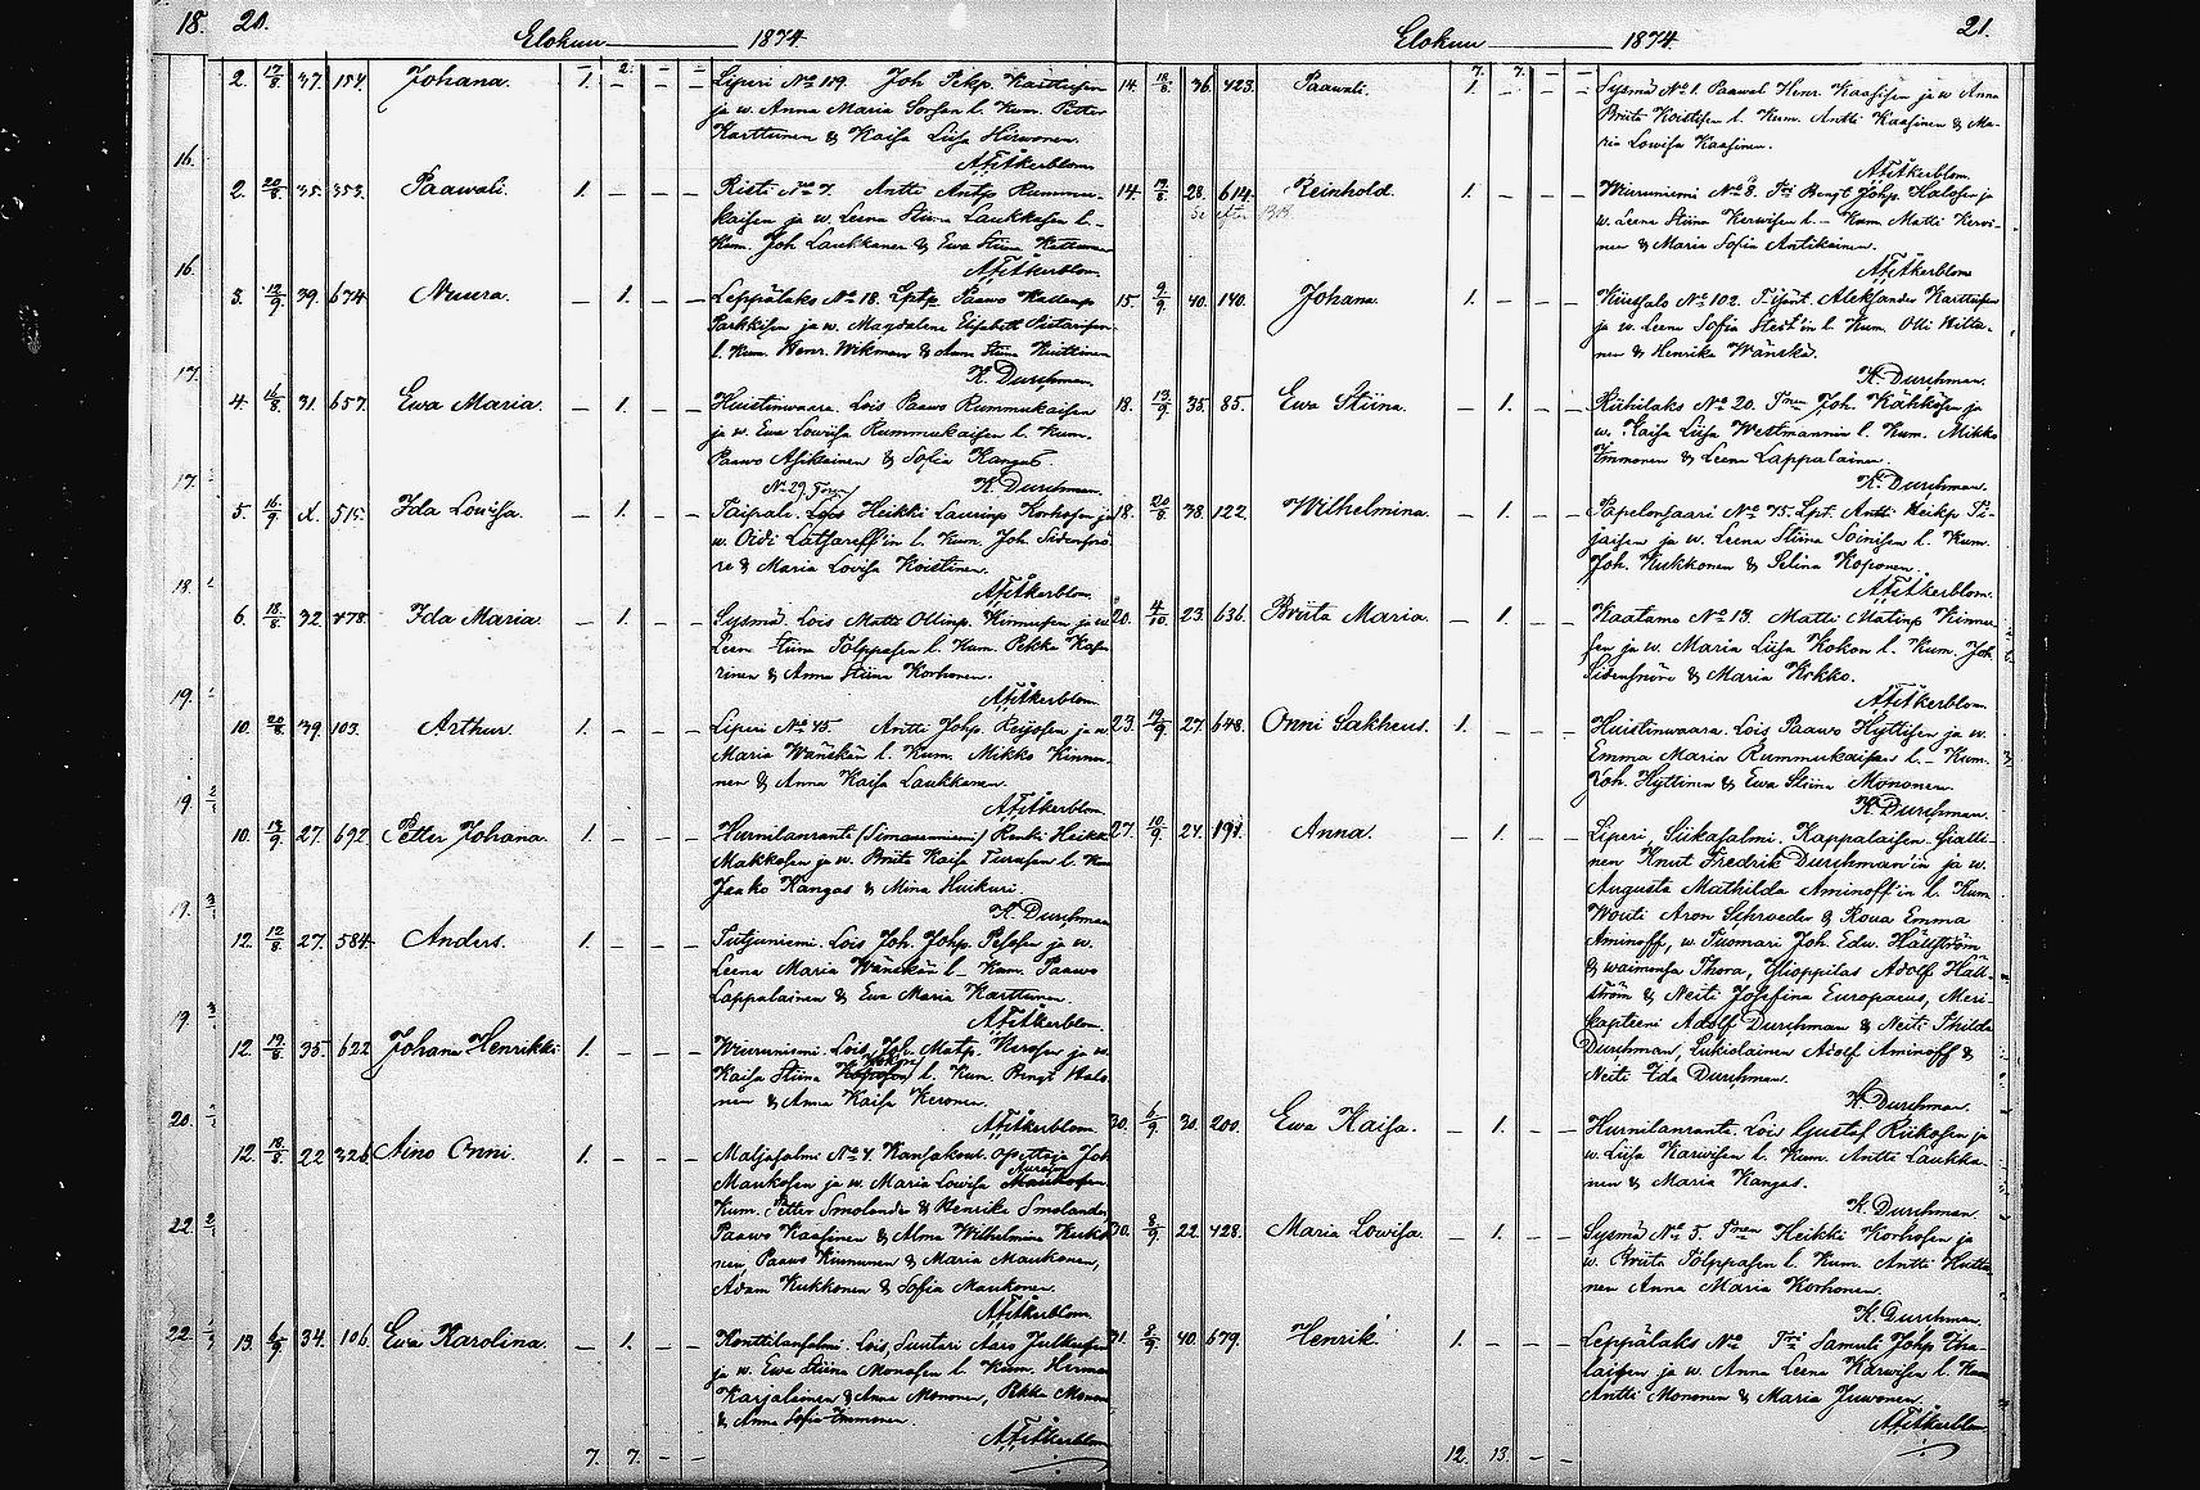 18. 20.
Elokuu 1874
2. 17/8 37. 154. Johana. 1. – – – Liperi No 119. Joh Pekp. Karttusen
ja w. Anna Maria Sorsan l. Kum. Petter
Karttunen & Kaisa Liisa Hirwonen.
A.F. Åkerblom.
2. 20/8 35. 353. Paawali. 1. – – – Risti No 7. Antti Antjp Rummu-
kaisen ja w. Leena Stiina Laukkasen l. –
Kum. Joh Laukkanen & Ewa Stiina
A.F. Åkerblom.
3. 12/9 39. 674 Nuura. – 1. – – Leppälaks No 18. Lptp. Paawo
Parkkisen ja w. Magdalena Elisabeth Pietarisen
l. Kum. Henr. Wikman & Anna Stiina Kuittinen
K. Durchman.
4. 16/8 31. 657. Ewa Maria. – 1. – – Huistinwaara. Lois Paawo Rummukaisen
ja w. Ewa Lowiisa Rummukaisen l. Kum.
Paawo Asikainen & Sofia Kangas.
K. Durchman.
No 29
5. 16/9 X. 515. Ida Lowisa. – 1. – – Taipale. Lois Heikki Laurinp Korhosen ja
w. Oidi Latsareff'in l. Kum. Joh. Sidensnö-
re & Maria Lovisa Koistinen.
A.F. Åkerblom.
6. 18/8 32. 478. Ida Maria. – 1. – – Sysmä. Lois Matti Ollinp. Kinnusen ja w
Leena Stiina Tolppasen l. Kum. Pekka
rinen & Anna Stiina Korhonen.
A.F. Åkerblom.
10. 20/8 39. 103. Arthur. 1. – – – Liperi No 45. Antti Johp. Reijosen ja w
Maria Wänskän l. Kum. Mikko Kinnu-
nen & Anna Kaisa Laukkanen.
A.F. Åkerblom
10. 13/9 27. 692. Petter Johana. 1. – – – Hurnilanranta (Simananniemi) Renki Heikki
Makkosen ja w. Briita Kaisa Turusen l. Kum
Jaako Kangas & Mina Huikuri.
K. Durchman
12. 12/8 27. 584. Anders. 1. – – – Tutjuniemi. Lois Joh. Johp. Pesosen ja w.
Leena Maria Wänskän l – Kum. Paawo
Lappalainen & Ewa Maria Karttunen.
A.F. Åkerblom.
12. 19/8 35. 622 Johana Henrikki 1. – – – Wiuruniemi. Lois Joh. Matp. Kerosen ja w.
Kaisa Stiina Koposen l. Kum. Bengt Halo-
nen & Anna Kaisa Keronen.
A.F. Åkerblom.
12. 18/8 22 326 Aino Onni. 1. – – – Maljasalmi No 4. Kansakoul. opettaja Joh
Maukosen ja w. Maria Lowisa Maukosen
Kum. Petter Smolander & Henrika Smolander
Paawo Kaasinen & Alma Wilhelmina Kukko
nen, Paawo Kinnunen & Maria Maukonen,
Adam Kukkonen & Sofia Maukonen.
A.F. Åkerblom.
13. 6/9 34. 106. Ewa Karolina. – 1. – – Konttilansalmi. Lois, Suutari Aaro Julkusen
ja w. Ewa Stiina Monosen l. Kum. Herman
Karjalainen & Anna Mononen, Pekka Mononen
& Anna Sofia Immonen.
A.F. Åkerblom
7. 7. – –
21.
Elokuu 1874.
7. 7. – –
14. 18/8 36. 423. Paawali. 1. – – – Sysmä No 1. Paawal Henr. Kaasisen ja w Anna
Briita Koistisen l. Kum. Antti Kaasinen & Ma-
ria Lowisa Kaasinen.
A.F. Åkerblom.
14. 19/8 28. 614. Reinhold. 1. – – – Wiuruniemi No 8. Bengt Johp. Halosen ja
Se efter 1313.
w. Leena Stiina Kerwisen l. – Kum. Matti Kervi-
nen & Maria Sofia Antikainen.
A.F. Åkerblom
15. 9/9 40. 140. Johana. 1. – – – Kiiessalo No 102. Aleksander Karttusen
ja w. Leena Sofia Stedt'in l. Kum. Olli Hilta-
nen & Henrika Wänskä.
K. Durchman.
18. 13/9 35. 85. Ewa Stiina. – 1. – – Riihilaks No 20. Tnen Joh. Kähkösen ja
w. Kaisa Liisa Westmannin l. Kum. Mikko
Immonen & Leena Lappalainen.
K. Durchman.
18. 20/8 38. 122. Wilhelmina. – 1. – – Papelonsaari No 45. Lpt. Antti Heikp Ti-
jaisen ja w. Leena Stiina Soinisen l. Kum.
Joh. Kukkonen & Selina Koponen.
A.F. Åkerblom.
20. 4/10 23. 636. Briita Maria. – 1. – – Kaatamo No 13. Matti Matinp Kinnu-
sen ja w. Maria Liisa Kokon l. Kum. Joh.
Sidensnöre & Maria Kokko.
A.F. Åkerblom.
23. 19/9 27. 648. Onni Sakheus. 1. – – – Huistinwaara. Lois Paawo Hyttisen ja w.
Emma Maria Rummukaisen l. – Kum.
Joh. Hyttinen & Ewa Stiina Mononen.
K Durchman.
27. 10/9 24. 191. Anna. – 1. – – Liperi, Siikasalmi. Kappalaisen Sialli-
nen Knut Fredrik Durchman'in ja w.
Augusta Mathilda Aminoff'in l. Kum
Wouti Aron Schroeder & Roua Emma
Aminoff, w. Tuomari Joh. Edw. Hällström
& waimonsa Thora, Ylioppilas Adolf Häll-
ström & Neiti Josefina Europaeus, Meri-
kapteeni Adolf Durchman & Neiti Thilda
Durchman, Lukiolainen Adolf Aminoff &
Neiti Ida Durchman.
K. Durchman.
30. 6/9 30. 200. Ewa Kaisa. – 1. – – Hurnilanranta. Lois Gustaf Riikosen ja
w. Liisa Karwisen l. Kum. Antti Laukka-
nen & Maria Kangas.
K. Durchman.
30. 8/9 22. 428. Maria Lowisa. – 1. – – Sysmä No 5. Tnen Heikki Korhosen ja
w. Briita Tolppasen l. Kum. Antti Hutta-
nen Anna Maria Korhonen.
K. Durchman.
31. 8/9 40. 679. Henrik. 1. – – – Leppälaks No Samuli Johp Iha-
laisen ja w. Anna Leena Karwisen l. Kum
Antti Mononen & Maria Juwonen.
A.F. Åkerblom
12. 13. – –